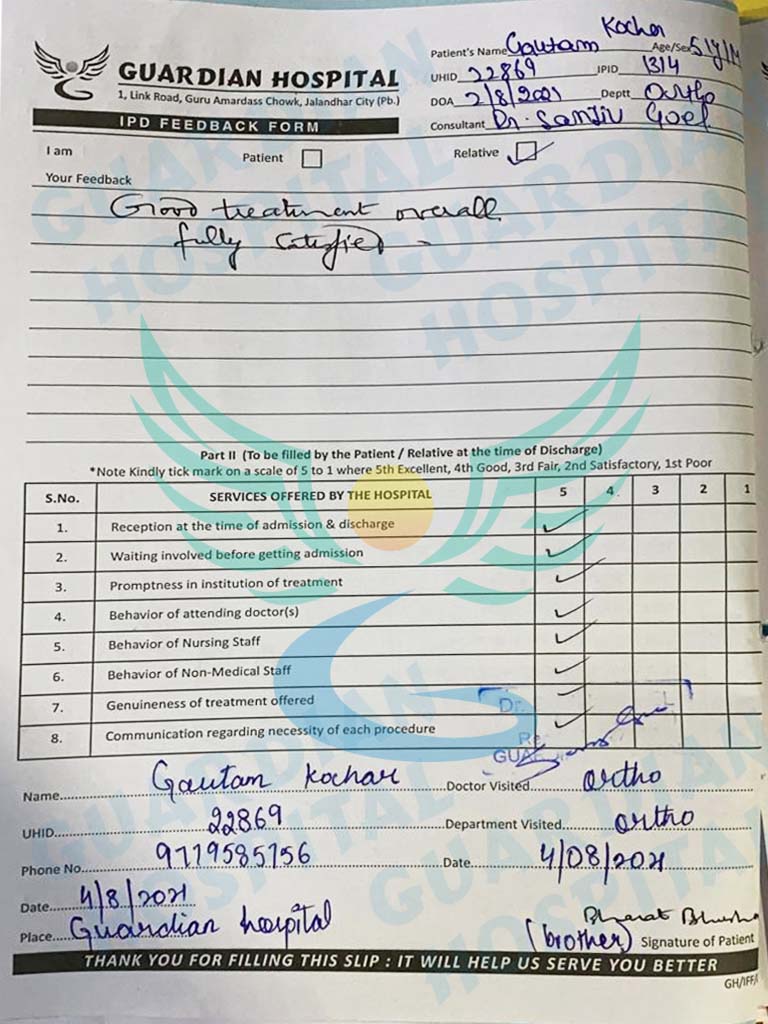 GUARDIAN HOSPITAL
1, Link Road, Guru Amardass Chowk, Jalandhar City (Pb.)
IPD FEEDBACK FORM
Patient's Name Gautam Kocher Age/Sex 51y/M
UHID 22869 IPID 1314
DOA 2/8/2021 Deptt Ortho
Consultant Dr. Sanjiv Goel
I am Patient Relative
Your Feedback
Good treatment overall
fully satisfied
Part II (To be filled by the Patient / Relative at the time of Discharge)
*Note Kindly tick mark on a scale of 5 to 1 where 5th Excellent, 4th Good, 3rd Fair, 2nd Satisfactory, 1st Poor
S.No. SERVICES OFFERED BY THE HOSPITAL 5 4 3 2 1
1. Reception at the time of admission & discharge
2. Waiting involved before getting admission
3. Promptness in institution of treatment
4. Behavior of attending doctor(s)
5. Behavior of Nursing Staff
6. Behavior of Non-Medical Staff
7. Genuineness of treatment offered
8. Communication regarding necessity of each procedure
Dr.
GUA
Name Gautam Kochar Doctor Visited ortho
UHID 22869 Department Visited ortho
Phone No 9779585756 Date 4/08/2021
Date 4/8/2021
Place Guardian hospital
Bharat Bhusha
(brother) Signature of Patient
THANK YOU FOR FILLING THIS SLIP : IT WILL HELP US SERVE YOU BETTER
GH/IFF/
GUARDIAN HOSPITAL